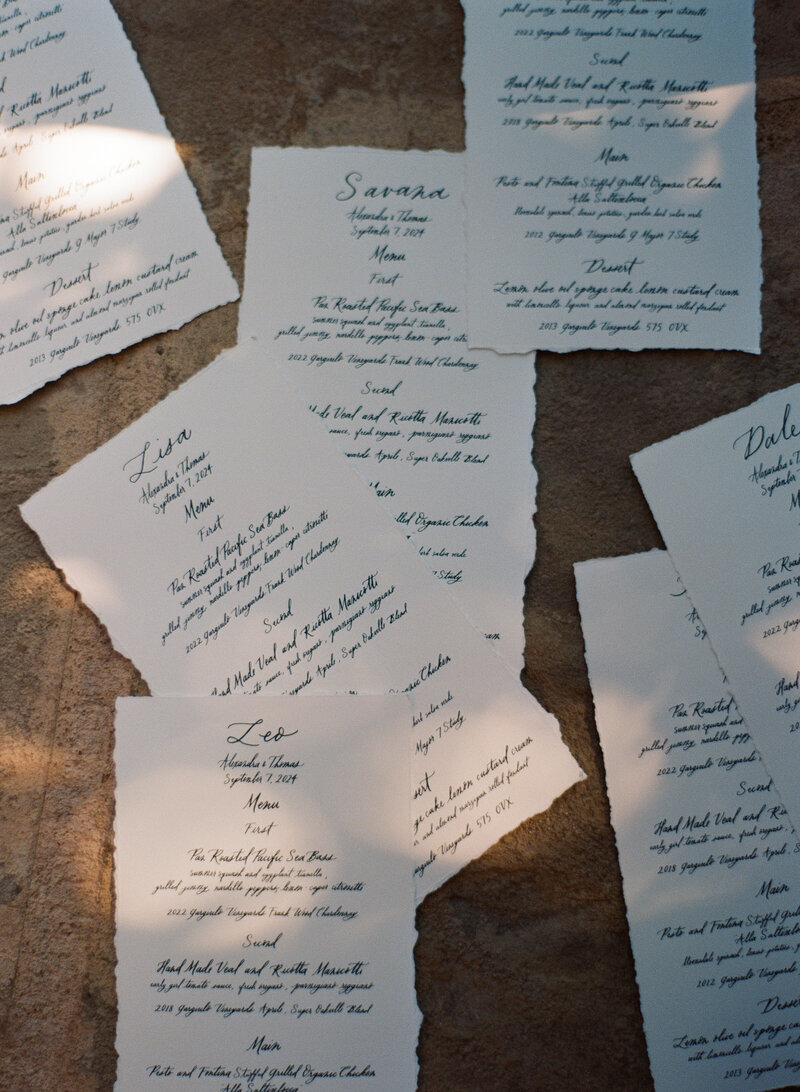 Ricotta Manicotti
Main
Stuffed Grilled Organic Chicken
Alla Saltimbocca
Gargiulo Vineyards G Major 7 Study
Dessert
olive oil sponge cake lemon custard cream
limoncello liqueur and almond marzipan rolled fondant
2013 Gargiulo Vineyards 575 OVX
Savana
Alexandra & Thomas
September 7, 2024
Menu
First
Pan Roasted Pacific Sea Bass
summer squash and eggplant
grilled lemon caper
2022 Gargiulo Vineyards Frank Wood Chardonnay
Second
Veal and Ricotta Manicotti
sauce, fresh oregano, parmigiano reggiano
Aprile, Super Oakville Blend
Organic Chicken
7 Study
grilled lemon caper
2022 Gargiulo Vineyards Frank Wood Chardonnay
Second
Hand Made Veal and Ricotta Manicotti
early girl tomato sauce, fresh oregano, parmigiano reggiano
2018 Gargiulo Vineyards Aprile, Super Oakville Blend
Main
Pesto and Fontina Stuffed Grilled Organic Chicken
Alla Saltimbocca
potatoes, garden herb salsa verde
2012 Gargiulo Vineyards G Major 7 Study
Dessert
Lemon olive oil sponge cake lemon custard cream
with limoncello liqueur and almond marzipan rolled fondant
2013 Gargiulo Vineyards 575 OVX
Lisa
Alexandra & Thomas
September 7, 2024
Menu
First
Pan Roasted Pacific Sea Bass
summer squash and eggplant
grilled lemon caper
2022 Gargiulo Vineyards Frank Wood Chardonnay
Second
Hand Made Veal and Ricotta Manicotti
sauce, fresh oregano, parmigiano reggiano
Aprile, Super Oakville Blend
Organic Chicken
herb salsa verde
Major 7 Study
cake lemon custard cream
and almond marzipan rolled fondant
Vineyards 575 OVX
Leo
Alexandra & Thomas
September 7, 2024
Menu
First
Pan Roasted Pacific Sea Bass
summer squash and eggplant
grilled lemon caper
2022 Gargiulo Vineyards Frank Wood Chardonnay
Second
Hand Made Veal and Ricotta Manicotti
early girl tomato sauce, fresh oregano, parmigiano reggiano
2018 Gargiulo Vineyards Aprile, Super Oakville Blend
Main
Pesto and Fontina Stuffed Grilled Organic Chicken
Alla Saltimbocca
Dale
Alexandra
September 7
Pan
summer
grilled
2022
Hand
Pan Roasted
summer squash and
grilled
2022 Gargiulo Vineyards
Second
Hand Made Veal and
early girl tomato sauce, fresh oregano,
2018 Gargiulo Vineyards Aprile,
Main
Pesto and Fontina Stuffed Grilled
Alla Saltimbocca
2012 Gargiulo Vineyards
Dessert
Lemon olive oil sponge
with limoncello liqueur and
2013 Gargiulo